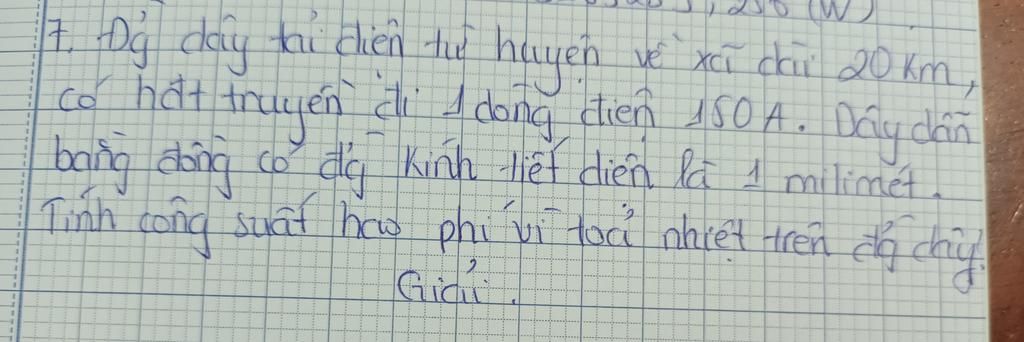 , 256 (W)
7. Đg dây tải điện từ huyện về xã dài 20 km,
có nơi truyền đi 1 dòng điện 150 A. Dây dẫn
bằng đồng có đg kính tiết diện là 1 milimét.
Tính công suất hao phí vì toả nhiệt trên đg dây.
Giải.